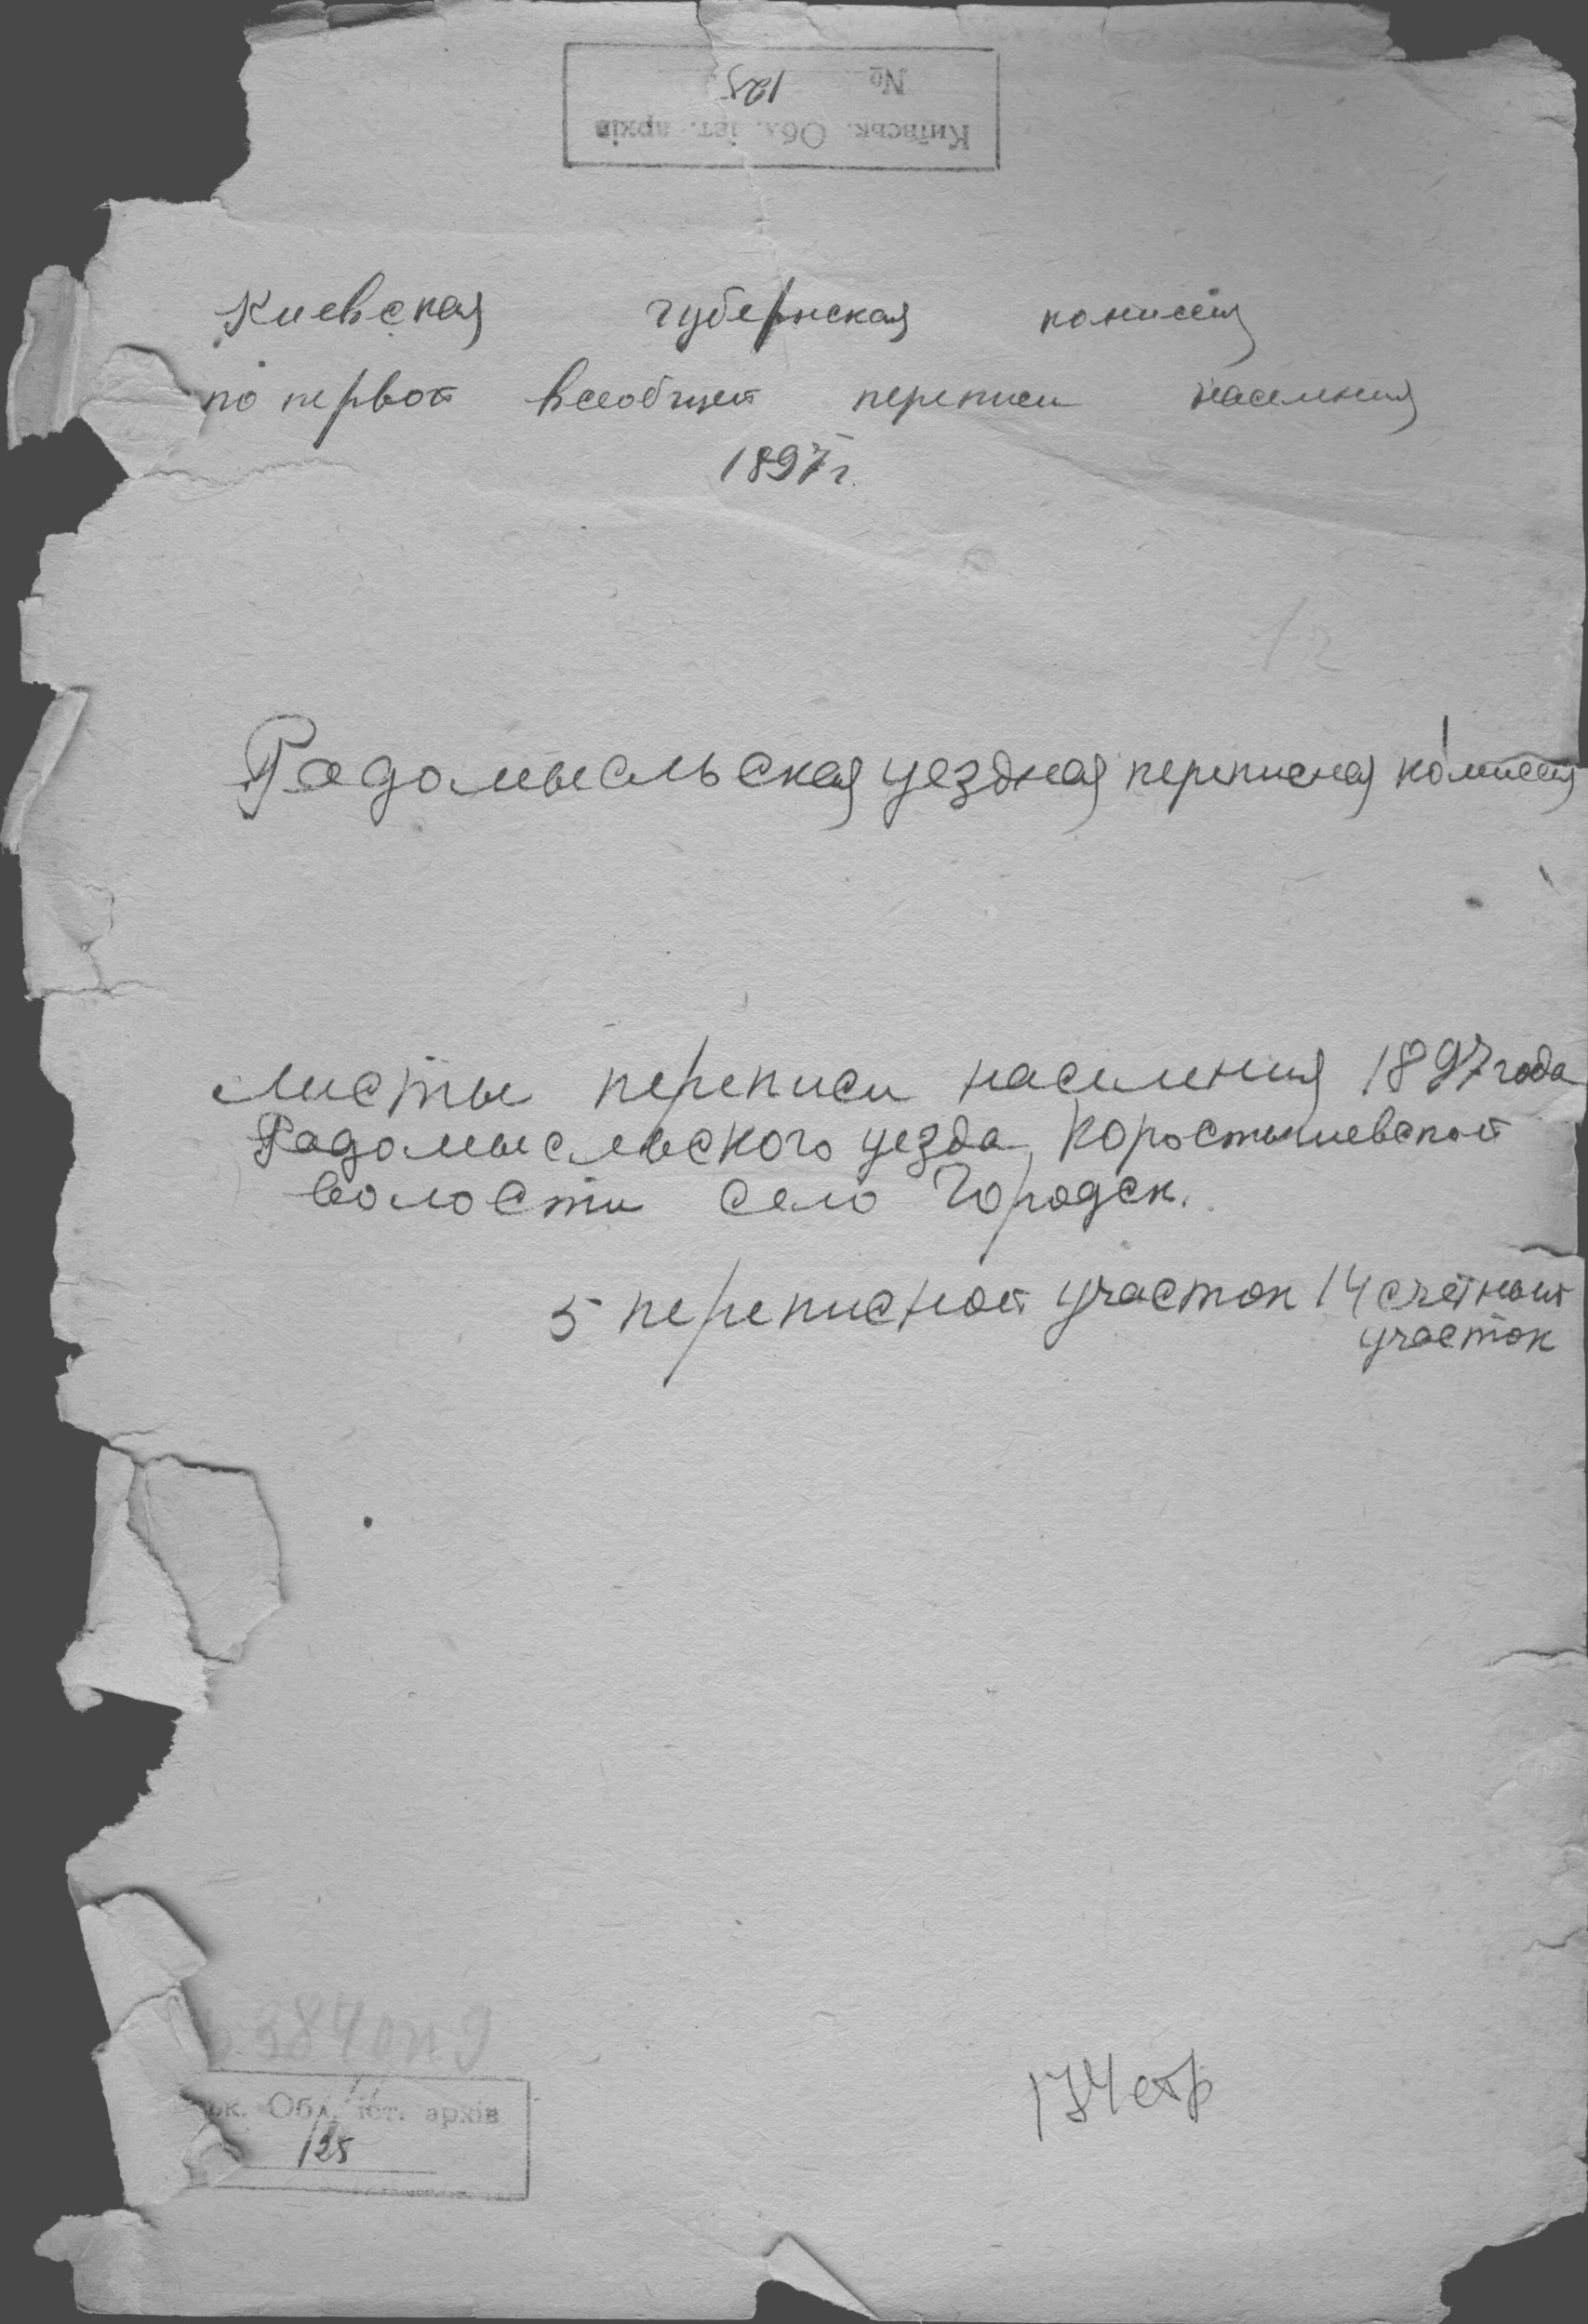 № 125
Київськ. Обл. іст. архів
Киевская губернская комиссия
по первой всеобщей переписи населения
1897 г.
Радомысльская уездная переписная комиссия
Листы переписи населения 1897 года
Радомысльского уезда, Коростышевской
волости село Городск.
5 переписной участок 14 счётный
участок
587 оп 9
ьк. Обл. іст. архів
125
174 стр